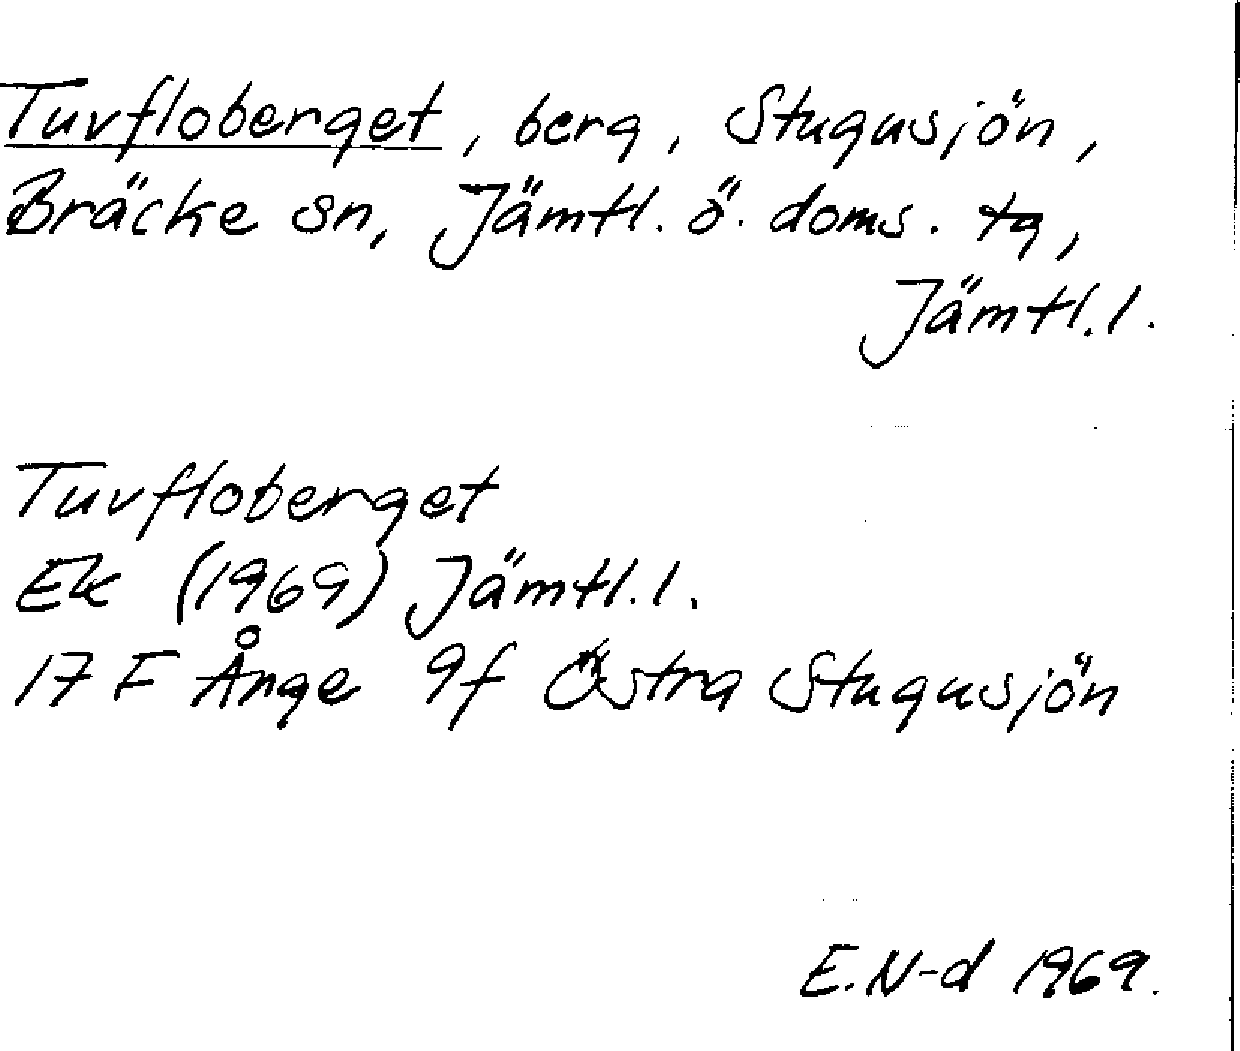 Turfloberget, berg, Stugusjön,
Bräcke sn, Jämtl. ö. doms. tg,
Jämtl. l.
Turfloberget
Ek (1969) Jämtl. l.
17 F Ånge 9f Östra Stugusjön
E.N-d 1969.